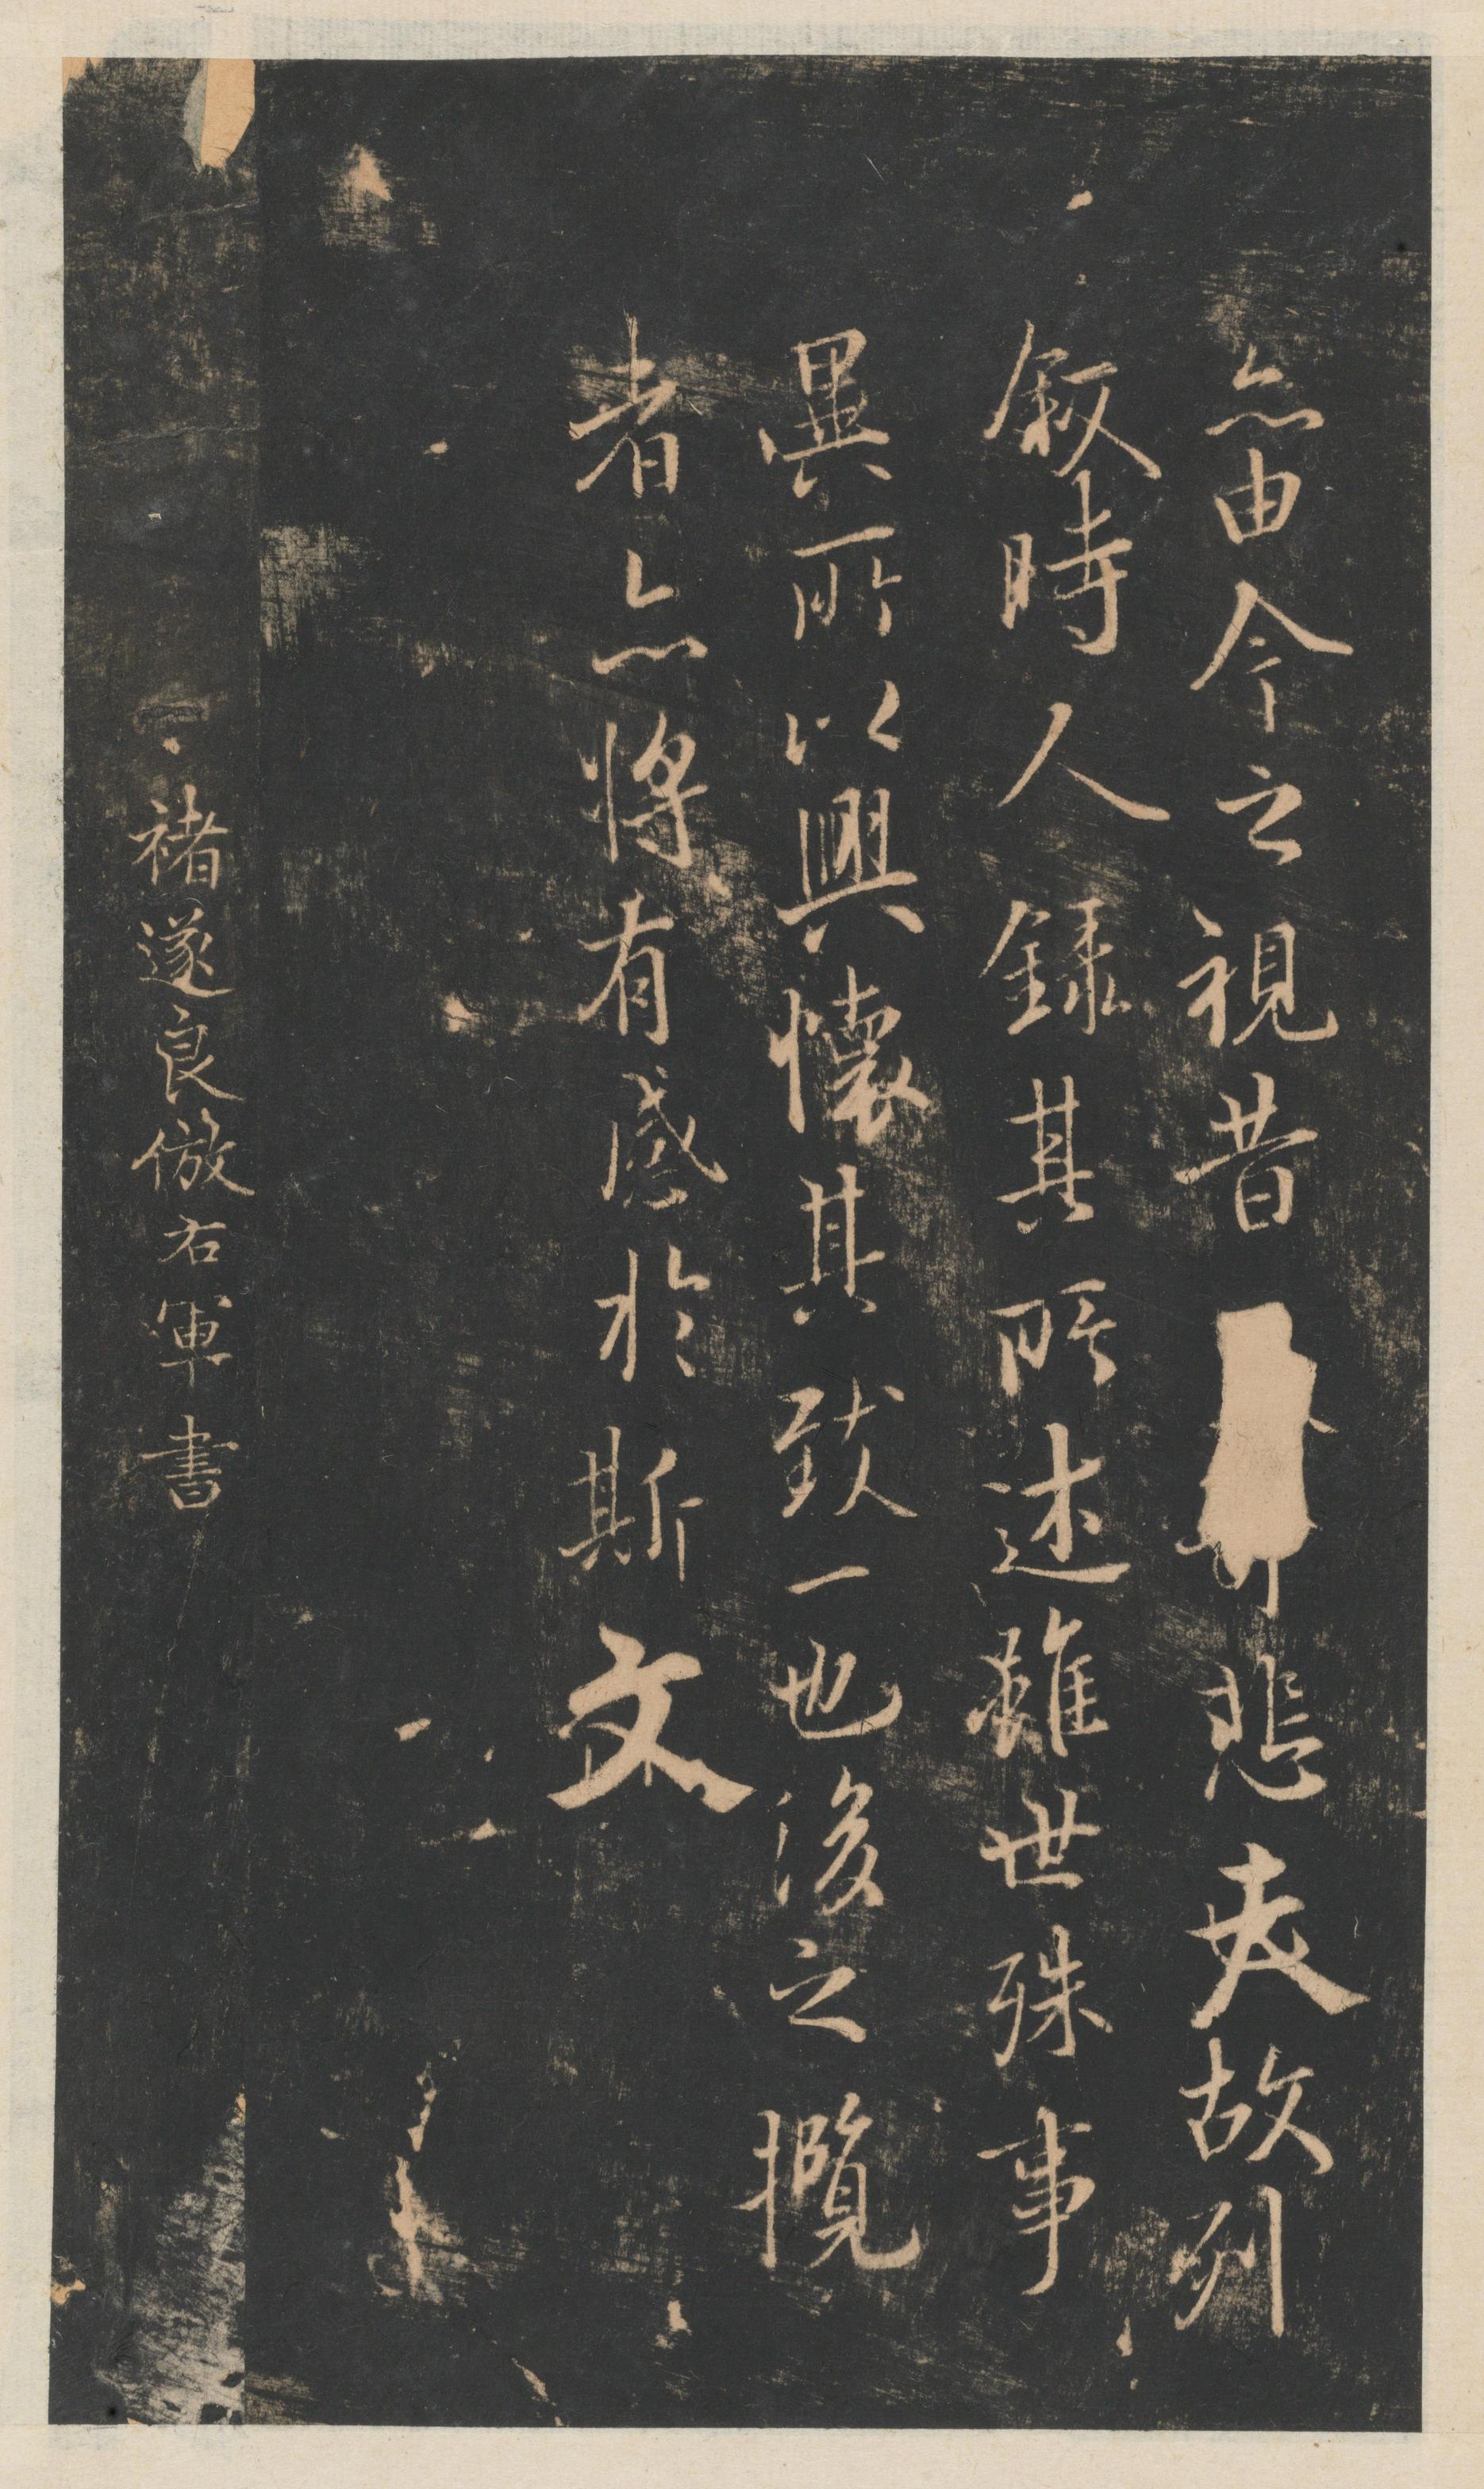 亦由今之視昔悲夫故列
叙時人錄其所述雖世殊事
異所以興懷其致一也後之攬
者亦將有感於斯文
褚遂良倣右軍書